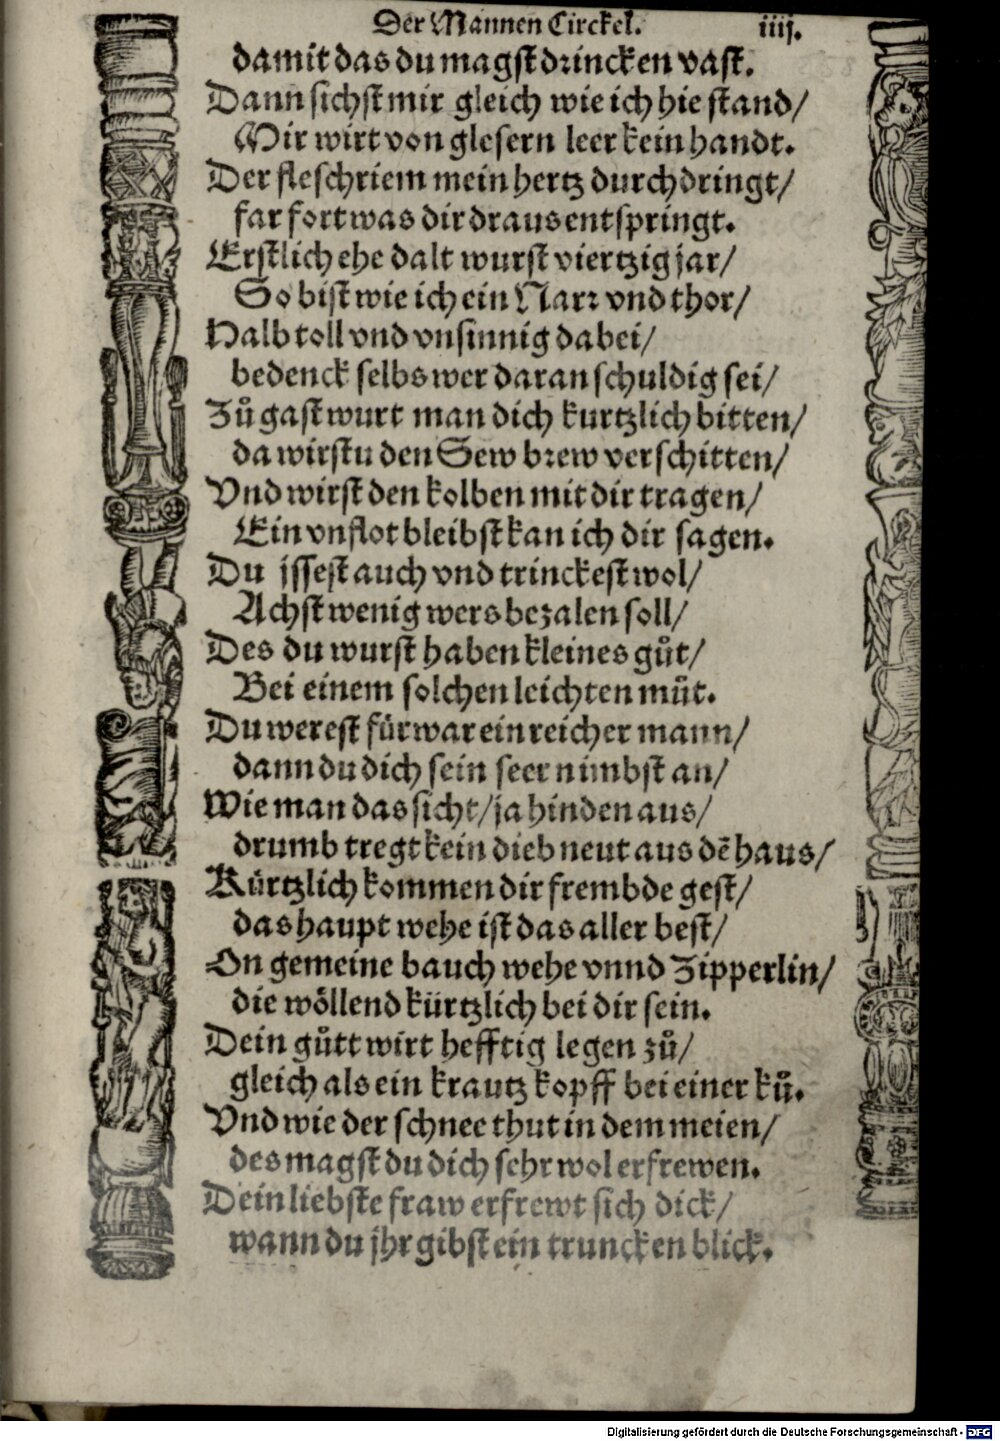 Der Mannen Circkel. iiij.
damit das du magst drincken vast.
Dann sichst mir gleich wie ich hie stand/
Mir wirt von glesern leer kein handt.
Der fleschriem mein hertz durchdringt/
far fort was dir draus entspringt.
Erstlich ehe dalt wurst viertzig jar/
So bist wie ich ein Narr vnd thor/
Halb toll vnd vnsinnig dabei/
bedenck selbs wer daran schuldig sei/
Zů gast wurt man dich kurtzlich bitten/
da wirstu den Sew brew verschitten/
Vnd wirst den kolben mit dir tragen/
Ein vnflot bleibst kan ich dir sagen.
Du jssest auch vnd trinckest wol/
Achst wenig wers bezalen soll/
Des du wurst haben kleines gůt/
Bei einem solchen leichten můt.
Du werest fürwar ein reicher mann/
dann du dich sein seer nimbst an/
Wie man das sicht/ja hinden aus/
drumb tregt kein dieb neut aus dē haus/
Kürtzlich kommen dir frembde gest/
das haupt wehe ist das aller best/
On gemeine bauch wehe vnnd Zipperlin/
die wöllend kürtzlich bei dir sein.
Dein gůtt wirt hefftig legen zů/
gleich als ein krautz kopff bei einer ků.
Vnd wie der schnee thut in dem meien/
des magst du dich sehr wol erfrewen.
Dein liebste fraw erfrewt sich dick/
wann du jhr gibst ein truncken blick.
Digitalisierung gefördert durch die Deutsche Forschungsgemeinschaft - DFG